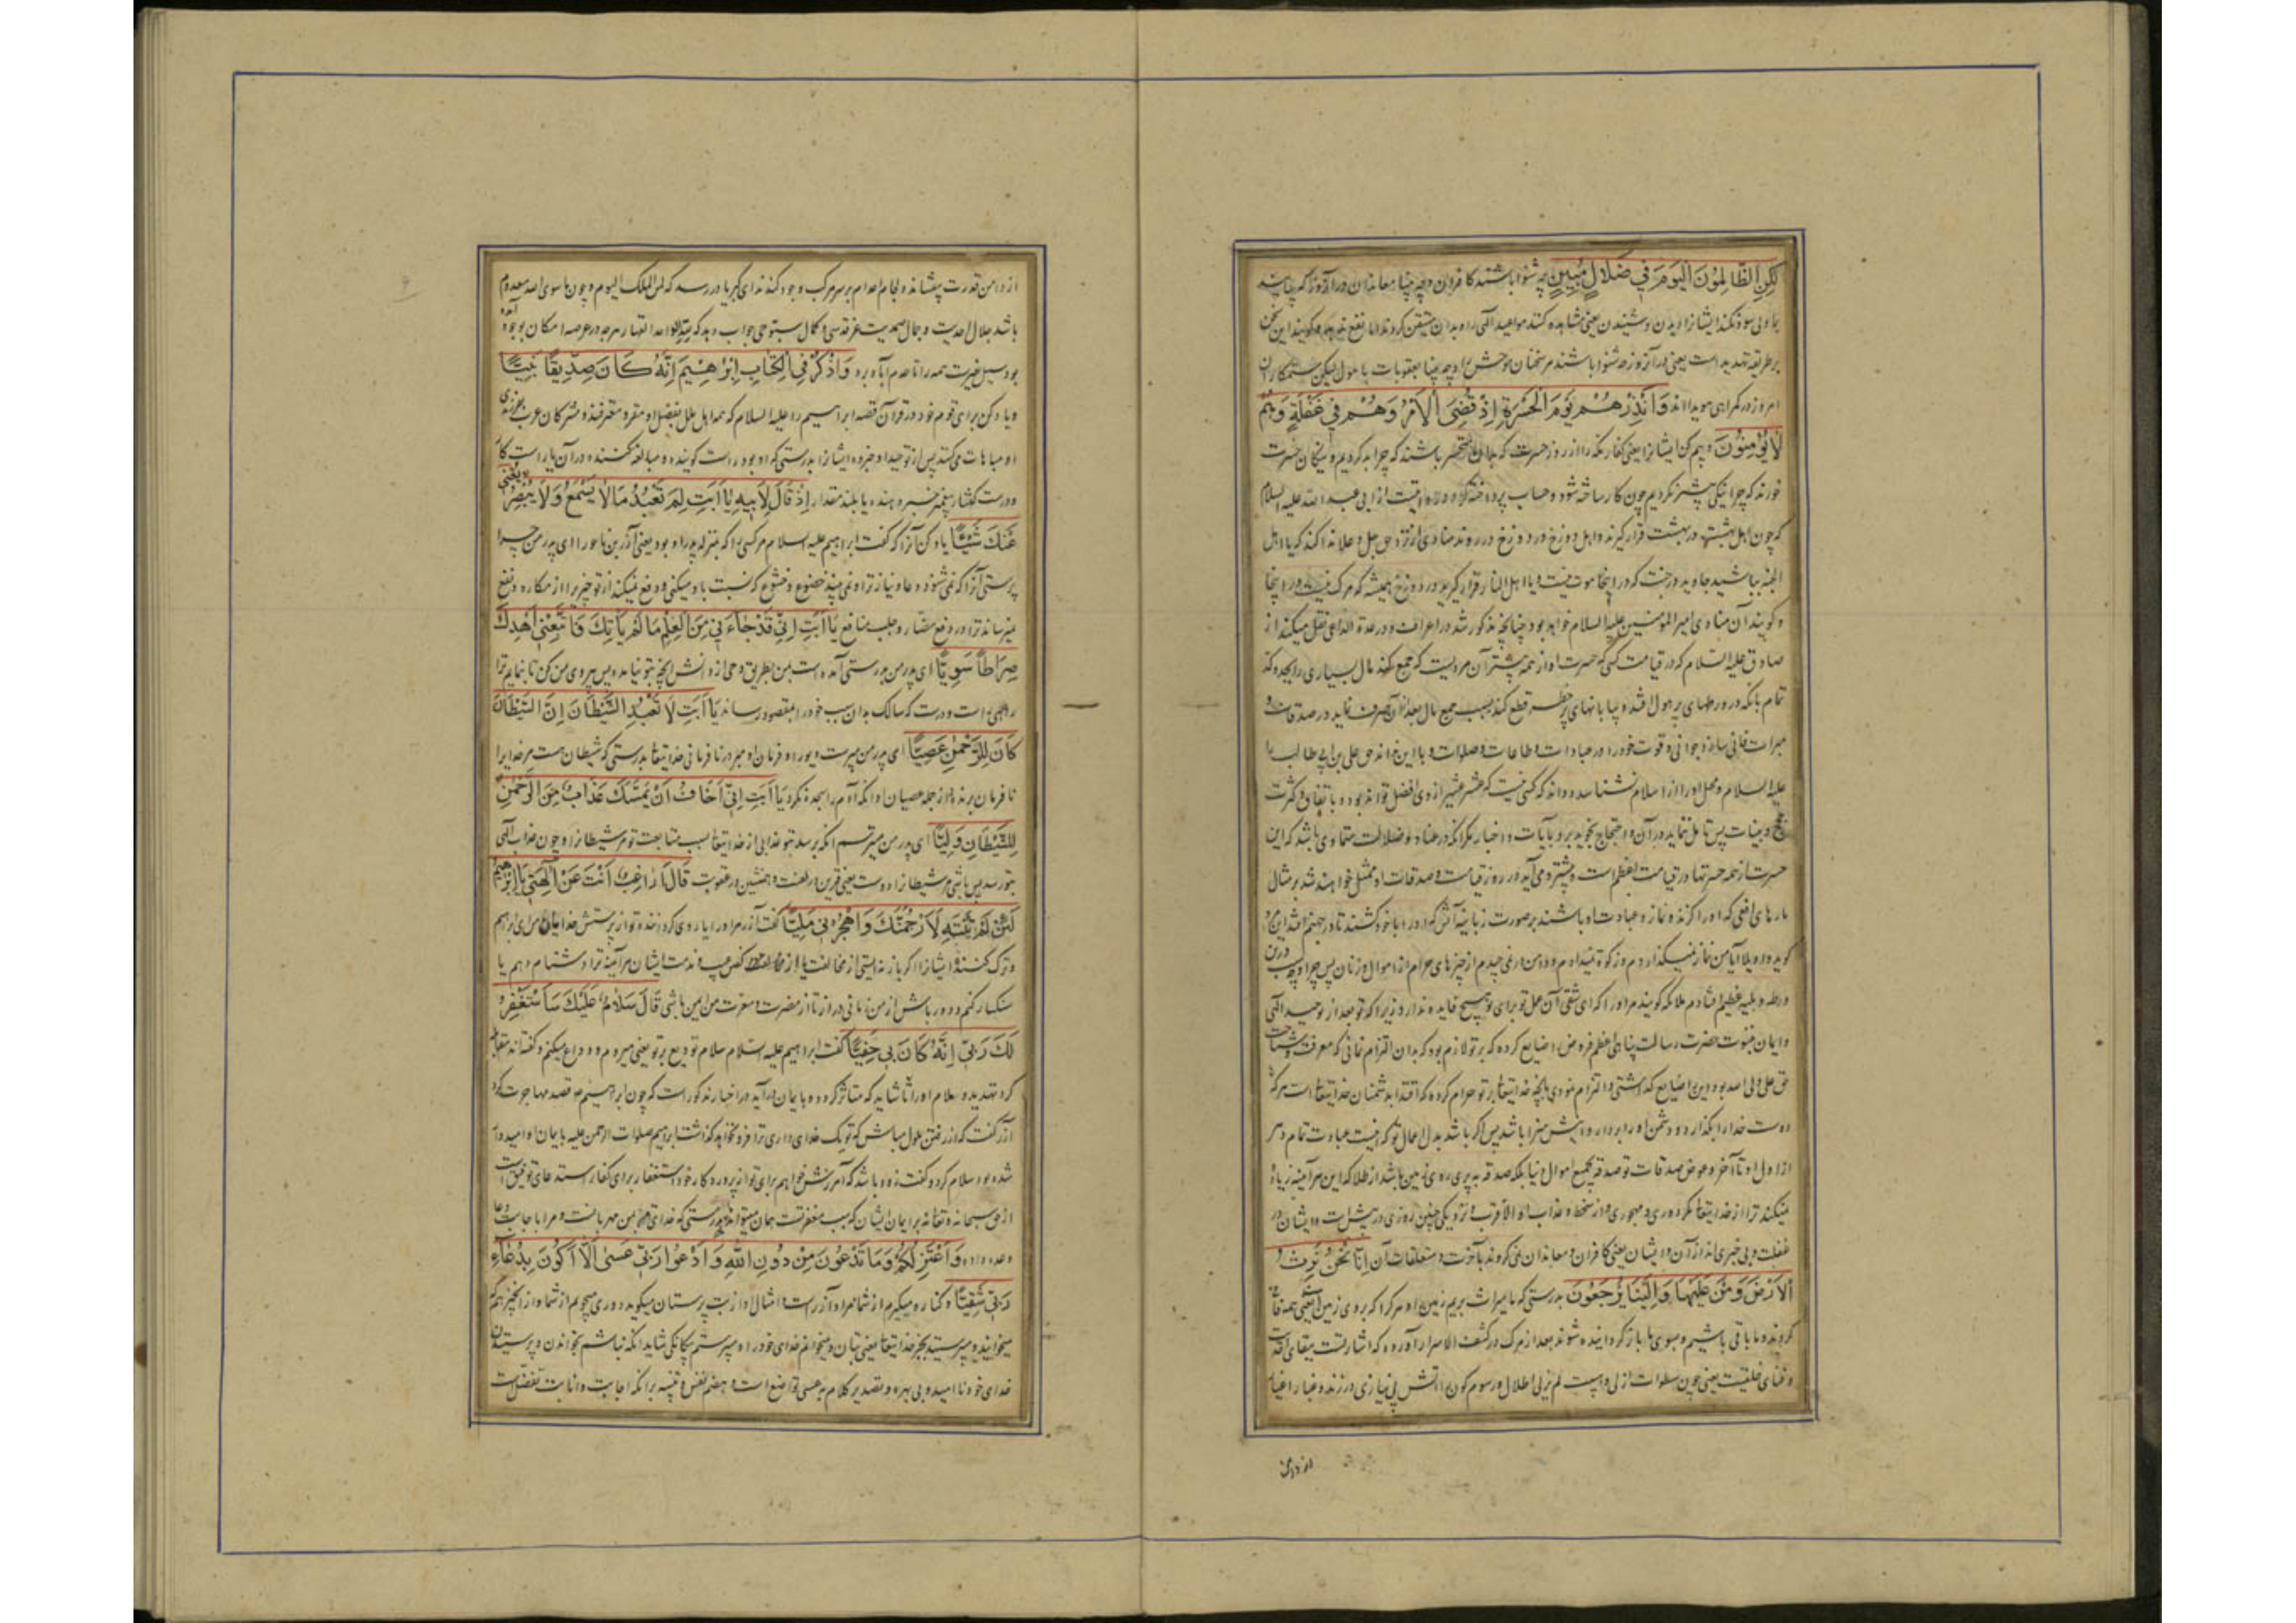 لٰكِنِ الظَّالِمُونَ الْيَوْمَ فِي ضَلَالٍ مُبِينٍ چه شنوا باشند کافران و چه بینا معاندان در آنروز که
ایشانرا دیدن و شنیدن یعنی مشاهده کنند مواعید الهی را و بدان متیقن کردند اما نفع ندهد و گویند این سخن
بر طریقه تهدید است یعنی در آنروز چه شنوا باشند مر سخنان موحش را و چه بینا بعقوبات با هول لیکن ستمکاران
امروز در گمراهی هویدااند وَأَنْذِرْهُمْ يَوْمَ الْحَسْرَةِ إِذْ قُضِيَ الْأَمْرُ وَهُمْ فِي غَفْلَةٍ وَهُمْ
لَا يُؤْمِنُونَ و بیم کن ایشانرا یعنی کفار مکه را از روز حسرت که بدان متحسر باشند که چرا بد کردیم و نیکان حسرت
خورند که چرا نیکی بیشتر نکردیم چون کار ساخته شود و حساب پرداخته از ابی عبد الله علیه السلام
که چون اهل بهشت در بهشت قرار گیرند و اهل دوزخ در دوزخ در روند منادی از نزد حق جل و علا ندا کند که یا اهل
الجنه بباشید جاوید در جنت که در اینجا موت نیست و یا اهل النار قرار گیرید در دوزخ همیشه که مرگ نیست در اینجا
و گویند آن منادی امیر المؤمنین علیه السلام خواهد بود چنانچه مذکور شد در اعراف و در عدة الداعی نقل میکند از
صادق علیه السلام که در قیامت کسی که حسرت او از همه بیشتر آن مردیست که جمع کند مال بسیاری را بجد و کد
تمام بانکه در ورطهای پر هول افتد و بیابانهای پر خطر قطع کند بسبب جمع مال بعد از آن صرف نماید در صدقات و
مبرات و فانی سازد جوانی و قوت خود را در عبادات و طاعات و صلوات و با این نداند حق علی بن ابی طالب را
علیه السلام و محل او را از اسلام نشناسد و داند که کسی نیست که عشر عشیر از وی افضل تواند بود و با
حجج و بینات پس تأمل ننماید در آن و احتجاج نجوید بر و بآیات و اخبار مگر آنکه در عناد و ضلالت متمادی باشد که این
حسرت از همه حسرتها در قیامت اعظم است و بیشتر و می آید در روز قیامت و صدقات او ممثل خواهند شد بر مثال
مارهای افعی که او را گزند و نماز و عبادت او باشند بر صورت زبانیه آتش که او را با خود کشند تا در جهنم افتد این
گوید واویلا آیا من نماز نمیگذاردم و زکوة نمیدادم و دامن در نمی چیدم از چیزهای حرام از اموال و زنان پس چرا درین
ورطه و بلیه عظیم افتادم ملائکه گویند مر او را که ای شقی آن عمل تو برای تو هیچ فایده ندارد زیرا که تو بعد از توحید الهی
و ایمان بنبوت حضرت رسالت پناهی اعظم فروض را ضایع کرده که بر تو لازم بود که بدان التزام نمائی که معرفت
حق علی ولی الله بود این را ضایع گذاشتی و التزام نمودی بانچه خدایتعالی بر تو حرام کرده که اقتدا بدشمنان خدایتعالی است هر که
دوست خدا را بگذارد و دشمن او را بردارد پس اگر باشد بدل اعمال تو که اینست عبادت تمام دهر
از اول او تا آخر و عوض صدقات تو صدقه بجمیع اموال دنیا بلکه صدقه به پری روی زمین باشد از طلا که این هر آینه زیاده
نمیکند ترا از خدایتعالی مگر دوری و مهجوری و از سخط و عذاب او الا قرب و نزدیکی چنین روزی در پیش است و ایشان در
غفلت و بی خبری اند از آن و ایشان یعنی کافران و معاندان نمی گروند بآخرت و متعلقات آن إِنَّا نَحْنُ نَرِثُ
الْأَرْضَ وَمَنْ عَلَيْهَا وَإِلَيْنَا يُرْجَعُونَ بدرستی که ما میراث بریم زمین را و هر که بر روی زمین است یعنی همه فانی
گردند و ما باقی باشیم و بسوی ما باز گردانیده شوند بعد از مرگ در کشف الاسرار آورده که اشارتست ببقای احدیت
و فنای خلقیت یعنی چون سطوات ازلی اطلال و رسوم کون را آتش بی نیازی در زند و غبار اغیار
از دامن
از دامن قدرت بیفشاند و لجام اعدام بر سر مرکب وجود کند ندای کبریا در رسد که لمن الملک الیوم و چون ما سوی الله معدوم
باشد جلال احدیت و جمال صمدیت جواب دهد که لله الواحد القهار هر چه در عرصه امکان بوجود آمده
بود سیل غیرت همه را تا عدم آباد برد وَاذْكُرْ فِي الْكِتَابِ إِبْرٰهِيمَ إِنَّهُ كَانَ صِدِّيقًا نَبِيًّا
و یاد کن برای قوم خود در قرآن قصه ابراهیم را علیه السلام که همه اهل ملل بفضل او مقر و معترفند و مشرکان عرب بفرزندی
او مباهات میکنند پس از توحید او خبر ده ایشانرا بدرستی که او بود راست گوینده و مبالغه کننده در آن یا راست کار
و درست گفتار پیغمبر خبر دهنده یا بلند مقدار إِذْ قَالَ لِأَبِيهِ يَا أَبَتِ لِمَ تَعْبُدُ مَا لَا يَسْمَعُ وَلَا يُبْصِرُ وَلَا يُغْنِي
عَنْكَ شَيْئًا یاد کن آنرا که گفت ابراهیم علیه السلام مر کسی را که بمنزله پدر او بود یعنی آزر بن ناحور را ای پدر من چرا
پرستی آنرا که نمی شنود دعا و نیاز ترا و نمی بیند خضوع و خشوع که نسبت باو میکنی و دفع نمیکند از تو چیزیرا از مکاره و نفع
نمیرساند ترا در دفع مضار و جلب منافع يَا أَبَتِ إِنِّي قَدْ جَاءَنِي مِنَ الْعِلْمِ مَا لَمْ يَأْتِكَ فَاتَّبِعْنِي أَهْدِكَ
صِرَاطًا سَوِيًّا ای پدر من بدرستی آمده است بمن بطریق وحی از دانش آنچه بتو نیامده پس پیروی من کن تا بنمایم ترا
راهی راست و درست که سالک بدان سبب خود را بمقصود رساند يَا أَبَتِ لَا تَعْبُدِ الشَّيْطَانَ إِنَّ الشَّيْطَانَ
كَانَ لِلرَّحْمٰنِ عَصِيًّا ای پدر من مپرست دیو را و فرمان او مبر در نافرمانی خدایتعالی بدرستی که شیطان هست مر خدا را
نافرمان برنده از جمله عصیان او آنکه آدم را سجده نکرد يَا أَبَتِ إِنِّي أَخَافُ أَنْ يَمَسَّكَ عَذَابٌ مِنَ الرَّحْمٰنِ
لِلشَّيْطَانِ وَلِيًّا ای پدر من میترسم آنکه برسد بتو عذابی از خدایتعالی بسبب متابعت تو مر شیطانرا و چون عذاب الهی
بتو رسد پس باشی مر شیطانرا دوست یعنی قرین در لعنت و همنشین در عقوبت قَالَ أَرَاغِبٌ أَنْتَ عَنْ آلِهَتِي يَا إِبْرٰهِيمُ
لَئِنْ لَمْ تَنْتَهِ لَأَرْجُمَنَّكَ وَاهْجُرْنِي مَلِيًّا گفت آزر مر او را آیا روی گرداننده تو از پرستش خدایان من ای ابراهیم
و ترک کننده ایشانرا اگر باز نه ایستی از مخالفت یا از عیب و مذمت ایشان هر آینه ترا دشنام دهم یا
سنگسار کنم و دور باش از من زمانی دراز تا از مضرت و معرت من ایمن باشی قَالَ سَلَامٌ عَلَيْكَ سَأَسْتَغْفِرُ
لَكَ رَبِّي إِنَّهُ كَانَ بِي حَفِيًّا گفت ابراهیم علیه السلام سلام تودیع بر تو یعنی میروم و وداع میکنم و گفته اند مقابله
کرد تهدید و سلام او را تا شاید که متأثر گردد و بایمان در آید در اخبار مذکور است که چون ابراهیم قصد مهاجرت کرد
آزر گفت که از رفتن ملول مباش که تو یک خدای داری ترا فرو نخواهد گذاشت ابراهیم صلوات الرحمن علیه بایمان او امیدوار
شده بود سلام کرد و گفت زود باشد که آمرزش خواهم برای تو از پروردگار خود استغفار برای کفار استدعای توفیق است
از حق سبحانه و تعالی بر ایمان ایشان که سبب مغفرتست همان میتواند بدرستی که خدای من بمن مهربانست و مرا باجابت دعا
وعده داده وَأَعْتَزِلُكُمْ وَمَا تَدْعُونَ مِنْ دُونِ اللّٰهِ وَأَدْعُوا رَبِّي عَسٰى أَلَّا أَكُونَ بِدُعَاءِ
رَبِّي شَقِيًّا و کناره میگیرم از شما مراد آزر است و امثال او از بت پرستان میگوید دوری میجویم از شما و از آنچه هم
میخوانید و میپرستید بجز خدایتعالی یعنی بتان و میخوانم خدای خود را و میپرستم بیگانگی شاید آنکه نباشم بخواندن و پرستیدن
خدای خود ناامید و بی بهره و تصدیر کلام به عسی تواضع است و هضم نفس و تنبیه بر آنکه اجابت و اثابت تفضل است